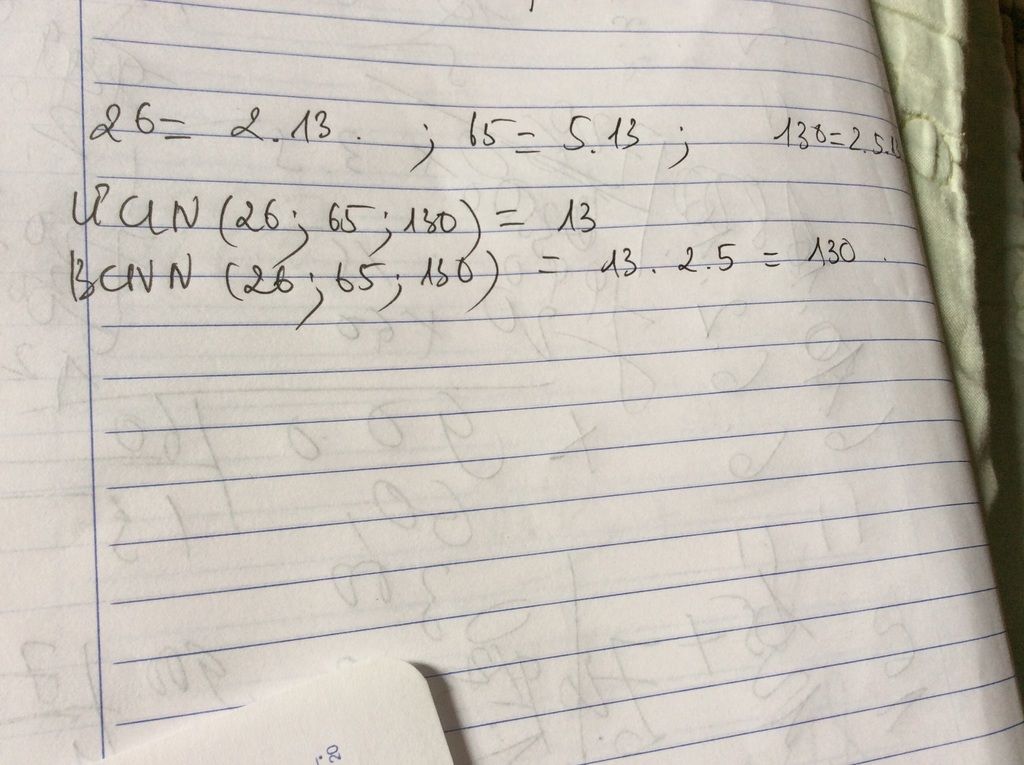 26 = 2.13. ; 65 = 5.13 ; 130 = 2.5.
ƯCLN (26; 65; 130) = 13
BCNN (26; 65; 130) = 13. 2.5 = 130.